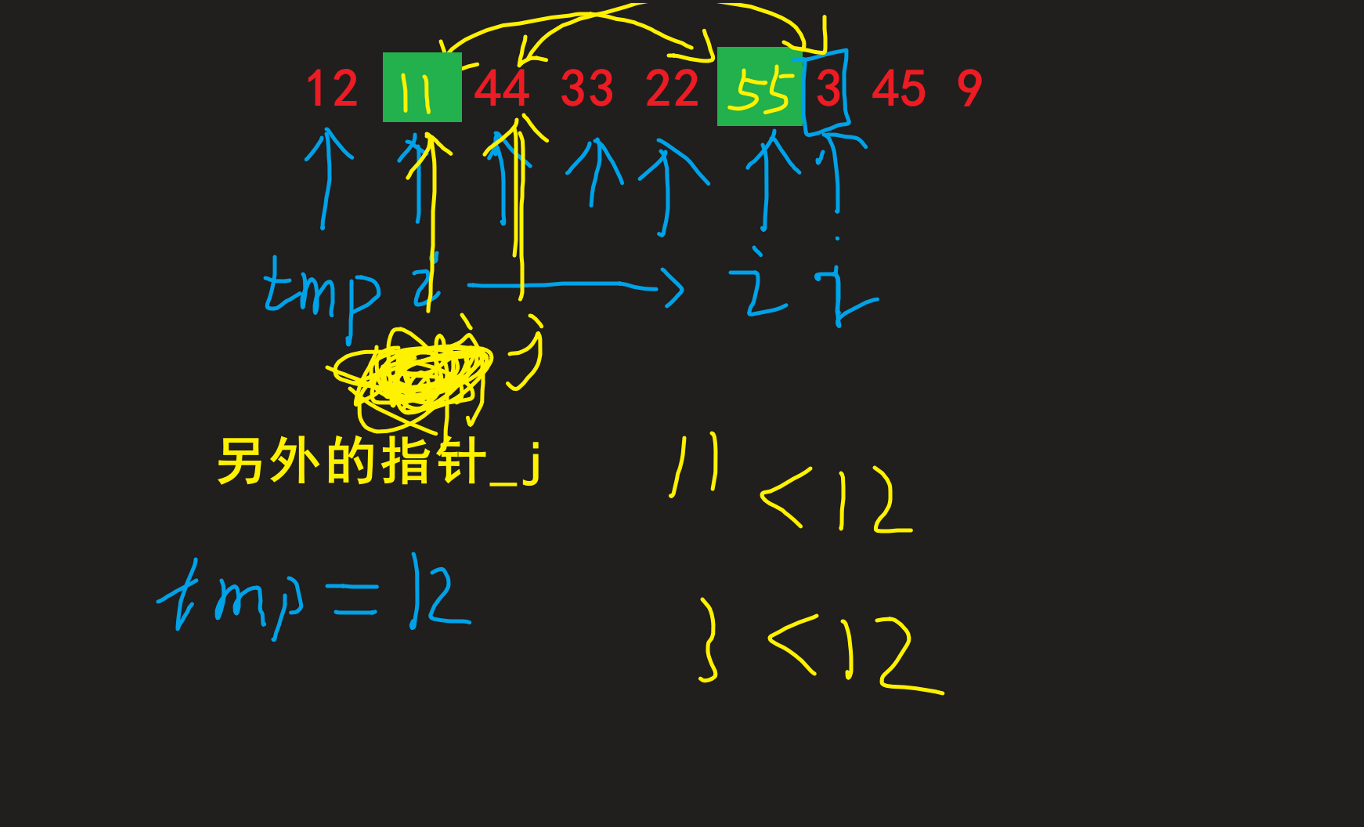 12 11 44 33 22 55 3 45 9
tmp i i i
j
另外的指针_j
11 < 12
tmp = 12
3 < 12